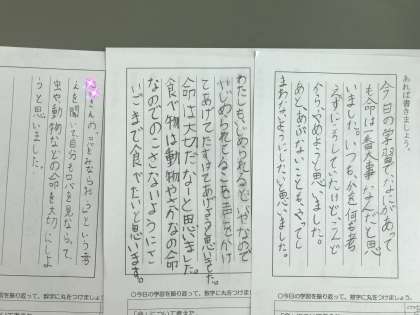 あれば書きましょう。
今日の学習で、なにがあって
も命は一番大事なんだと思
いました。いつも、虫を何も考
えずにころしていたけど、こんど
から、やめようと思いました。
あと、あぶないことも、やってし
まわないようにしたいと思いました。
わたしも、いじめられるといやなので
いじめられてる子に声をかけ
てあげてたすけてあげようと思いました。
命は大切だなーと思いました。
食べ物は動物やさかなの命
なのでのこさないようにさ
いごまで食べたいと思います。
さんの
という考
えを聞いて自分も
を見ならって、
虫や動物などの命を大切にしよ
うと思いました。
を振り返って、数字に丸をつけましょう。
○今日の学習を振り返って、数字に丸をつけましょう。
○今日の学習を振り返って、数字に丸をつけましょう。